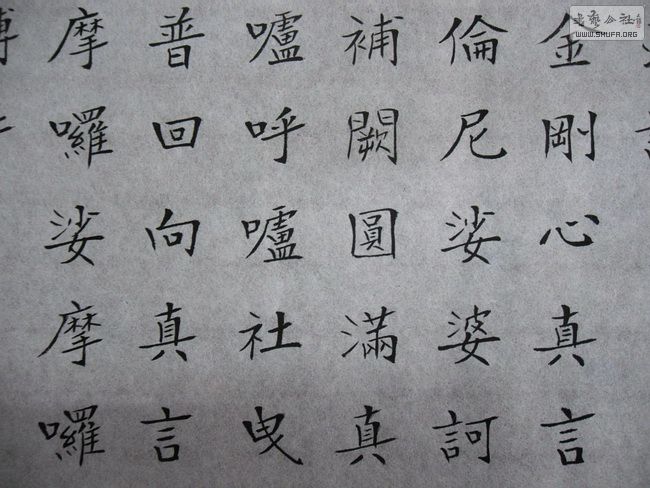 金剛心真言
倫尼娑婆訶
補闕圓滿真
嚧呼嚧社曳
普回向真言
摩囉娑摩囉
WWW.SHUFA.ORG